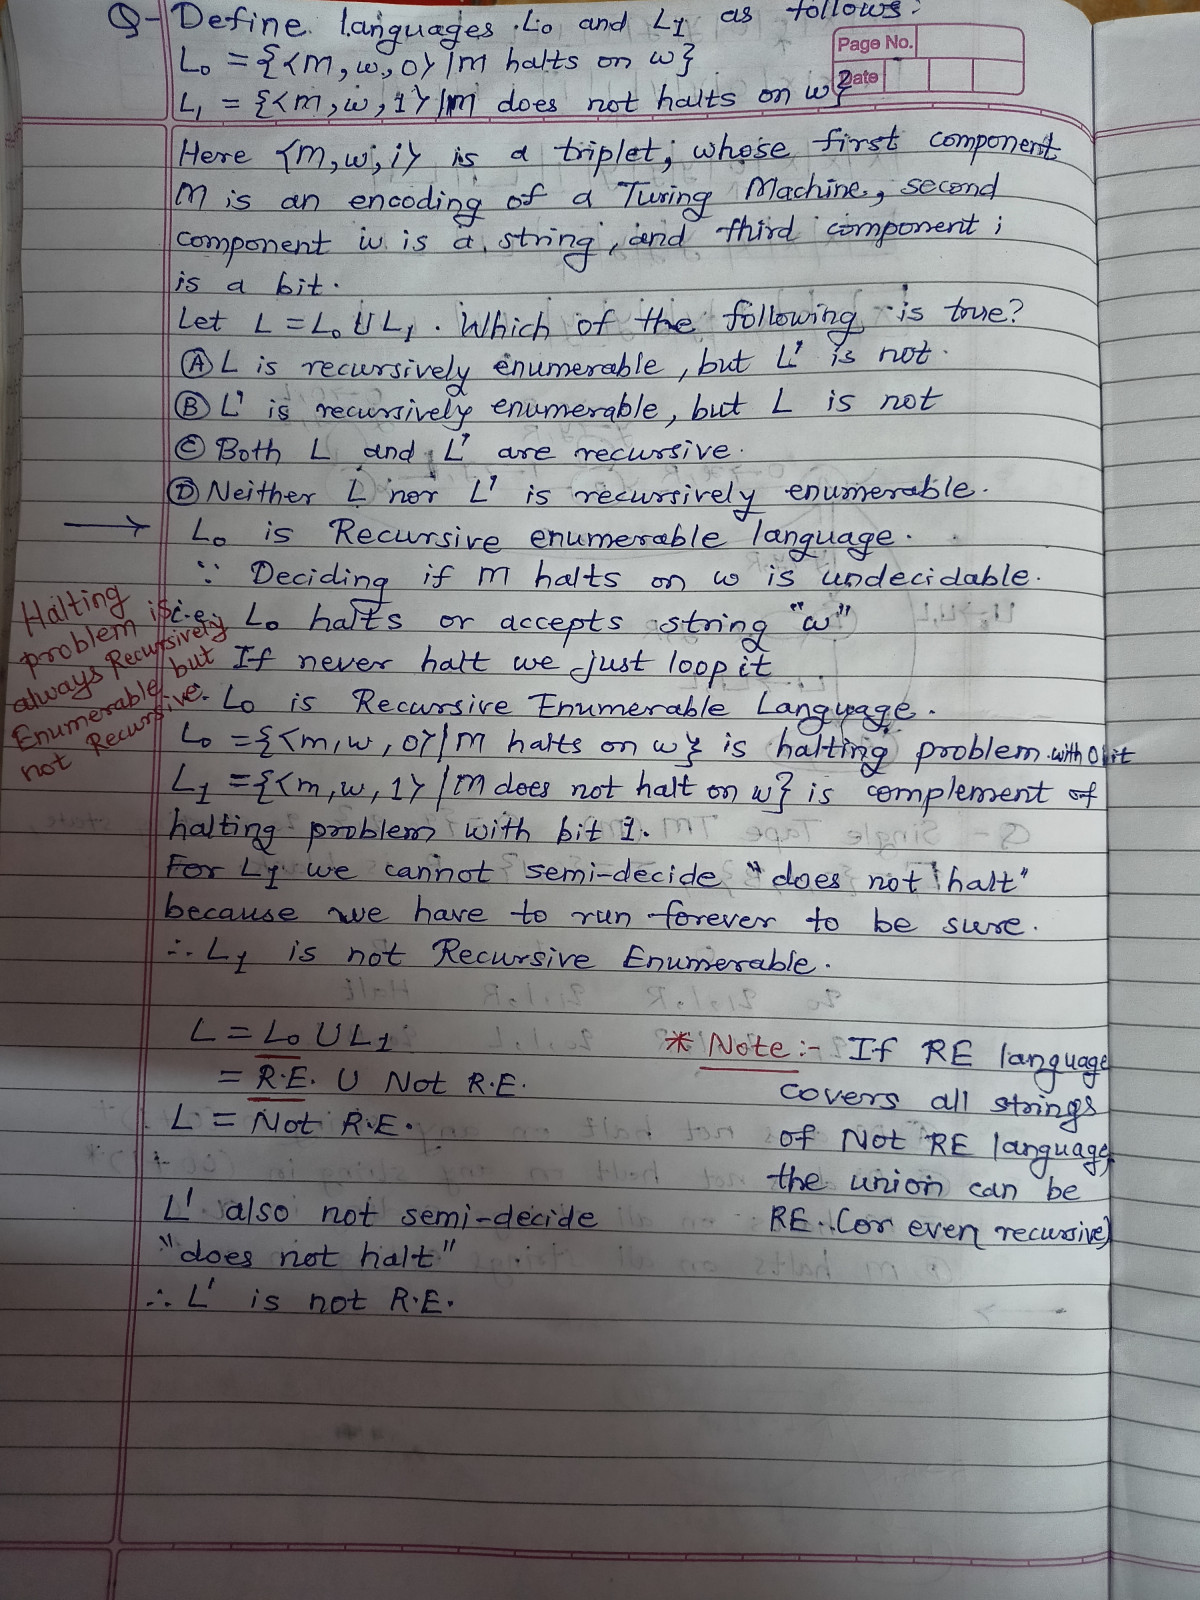 Q- Define languages L₀ and L₁ as follows:
L₀ = {<m, w, 0> | m halts on w}
Page No.
Date
L₁ = {<m, w, 1> | m does not halts on w}
Here <m, w, i> is a triplet, whose first component
M is an encoding of a Turing Machine, second
component w is a string, and third component i
is a bit.
Let L = L₀ ∪ L₁. Which of the following is true?
Ⓐ L is recursively enumerable, but L' is not.
Ⓑ L' is recursively enumerable, but L is not
Ⓒ Both L and L' are recursive.
Ⓓ Neither L nor L' is recursively enumerable.
→ L₀ is Recursive enumerable language.
∵ Deciding if m halts on w is undecidable.
i.e. L₀ halts or accepts string "w"
If never halt we just loop it
L₀ is Recursive Enumerable Language.
Halting
problem is
always Recursively
Enumerable but
not Recursive.
L₀ = {<m, w, 0> | M halts on w} is halting problem with 0 bit
L₁ = {<m, w, 1> | M does not halt on w} is complement of
halting problem with bit 1.
For L₁ we cannot semi-decide "does not halt"
because we have to run forever to be sure.
∴ L₁ is not Recursive Enumerable.
L = L₀ ∪ L₁
= R.E. ∪ Not R.E.
L = Not R.E.
L' also not semi-decide
"does not halt"
∴ L' is not R.E.
* Note:- If RE language
covers all strings
of Not RE language
the union can be
RE. (or even recursive)